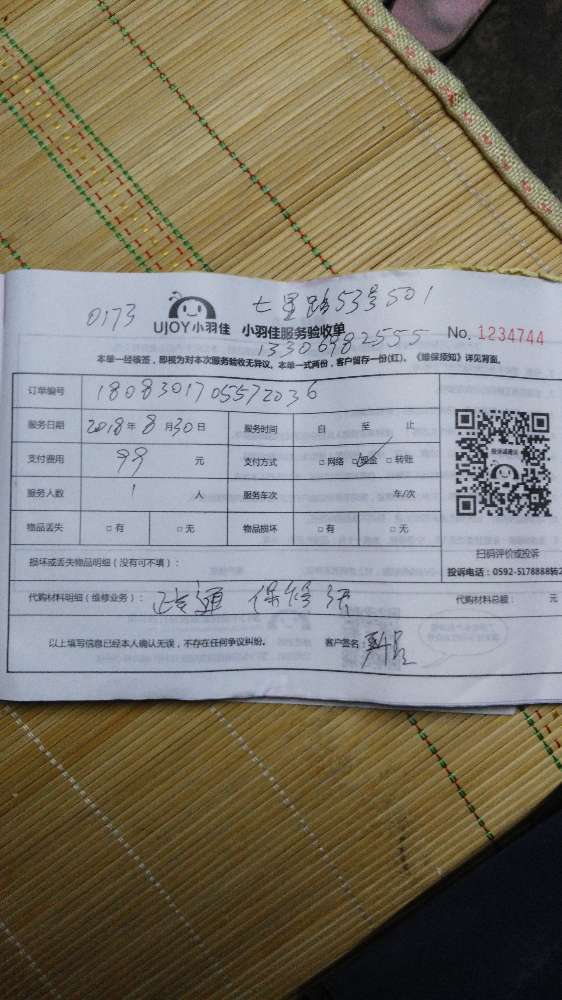 0173 七星路53号501
UJOY小羽佳 小羽佳服务验收单 No. 1234744
13306982555
本单一经核签，即视为对本次服务验收无异议。本单一式两份，客户留存一份(红)。《维保须知》详见背面。
订单编号 1808301705572036
服务日期 2018年8月30日 服务时间 自 至 止
支付费用 99 元 支付方式 □网络 □现金 □转账
服务人数 1 人 服务车次 车/次
物品丢失 □有 □无 物品损坏 □有 □无
投诉或建议
扫码评价或投诉
投诉电话：0592-5178888转2
损坏或丢失物品明细（没有可不填）：
代购材料明细（维修业务）： 通 保修 代购材料总额： 元
以上填写信息已经本人确认无误，不存在任何争议纠纷。 客户签名：